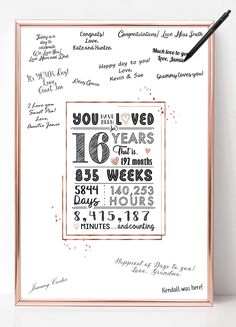 Today is a
day to
celebrate
We Love You!
Love Mom and Dad
Congrats!
Love,
Kate and Hunter
Congratulations! Love Miss Smith
Much love to you!
Love, Jamie
Happy day to you!
Love,
Kevin & Sue
Grammy loves you!
It's YOUR Day!
Love,
Aunt Jen
Missy Grace
I Love you
Sweet Pea!
Love,
Auntie Janie
YOU HAVE BEEN LOVED
for
16 YEARS
That is...
192 months
835 WEEKS
5844 Days
140,253 HOURS
8,415,187
MINUTES... and counting
Happiest of Days to you!
Love, Grandma
Jimmy Carter
Kendall was here!